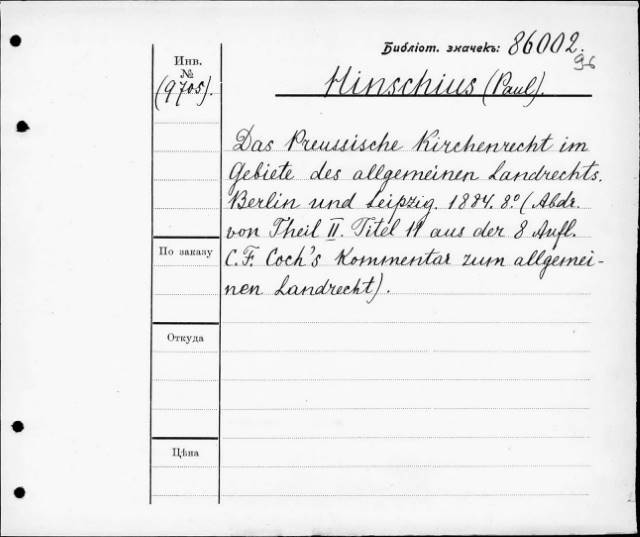 Библіот. значекъ: 86002.
96
Инв.
№
(9705).
Hinschius (Paul).
Das Preussische Kirchenrecht im
Gebiete des allgemeinen Landrechts.
Berlin und Leipzig. 1884. 8º (Abdr.
von Theil II. Titel 11 aus der 8 Aufl.
C. F. Coch's Kommentar zum allgemei-
nen Landrecht).
По заказу
Откуда
Цѣна